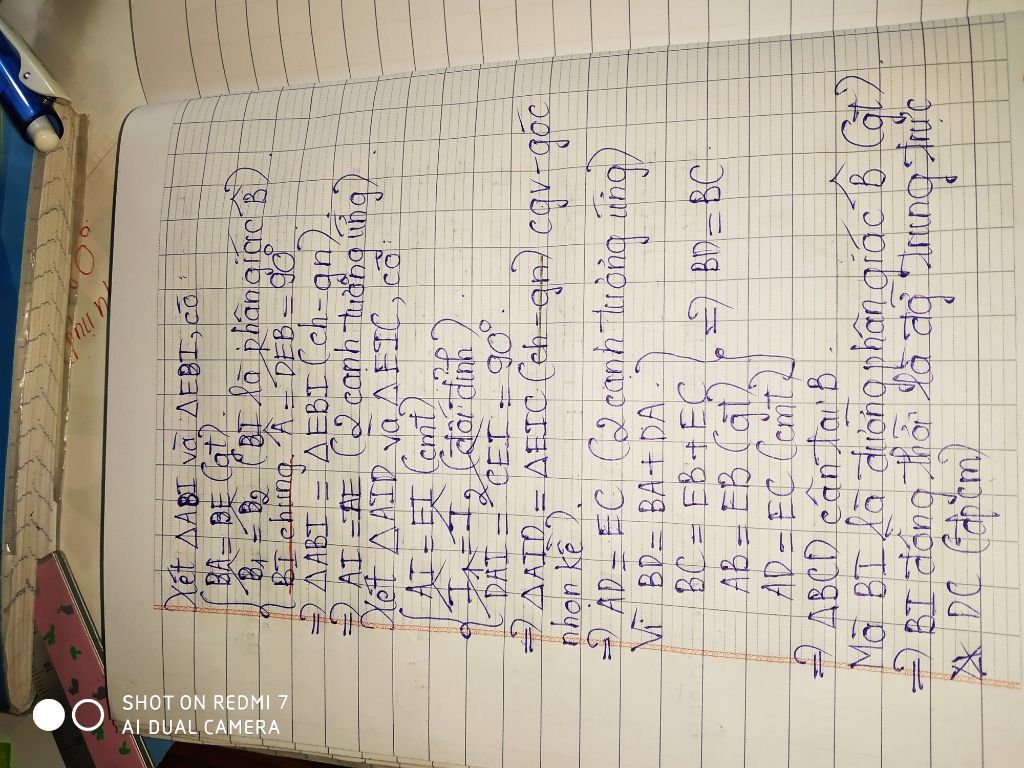 Xét ΔABI và ΔEBI, có:
BA = BE (gt)
B₁ = B₂ (BI là phân giác B̂)
BI chung
= DEB = 90°
=> ΔABI = ΔEBI (ch-gn)
=> AI = AE (2 cạnh tương ứng)
Xét ΔAID và ΔEIC, có:
AI = EI (cmt)
I₁ = I₂ (đối đỉnh)
DAI = CEI = 90°
=> ΔAID = ΔEIC (ch-gn) cgv-góc
nhọn kề)
=> AD = EC (2 cạnh tương ứng)
Vì BD = BA + DA
BC = EB + EC
AB = EB (gt)
AD = EC (cmt)
=> BD = BC
=> ΔBCD cân tại B
Mà BI là đường phân giác B̂ (gt)
=> BI đồng thời là đg trung trực
DC (đpcm)
SHOT ON REDMI 7
AI DUAL CAMERA